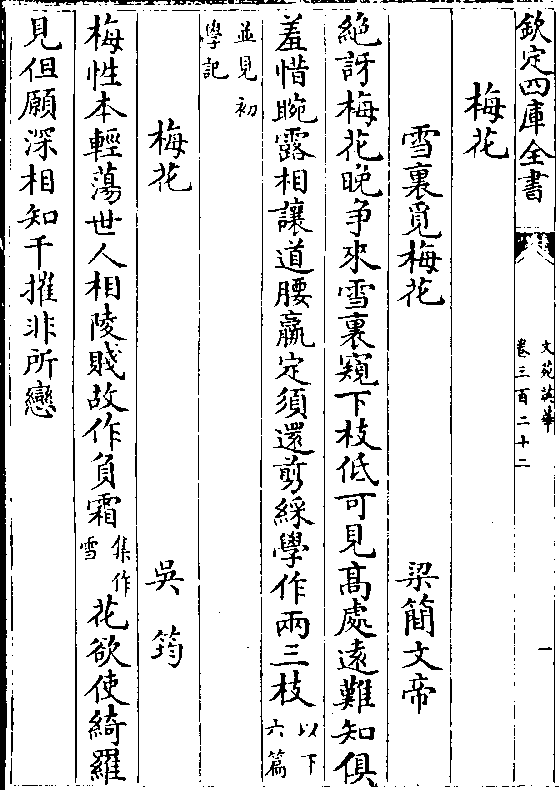 欽定四庫全書
文苑英華
卷三百二十二
一
梅花
雪裏覓梅花 梁簡文帝
絶訝梅花晚争來雪裏窺下枝低可見髙處逺難知俱
羞惜腕露相讓道腰羸定須還剪綵學作兩三枝以下六篇
並見初學記
梅花 吳筠
梅性本輕蕩世人相陵賤故作負霜集作雪花欲使綺羅
見但願深相知千摧非所戀